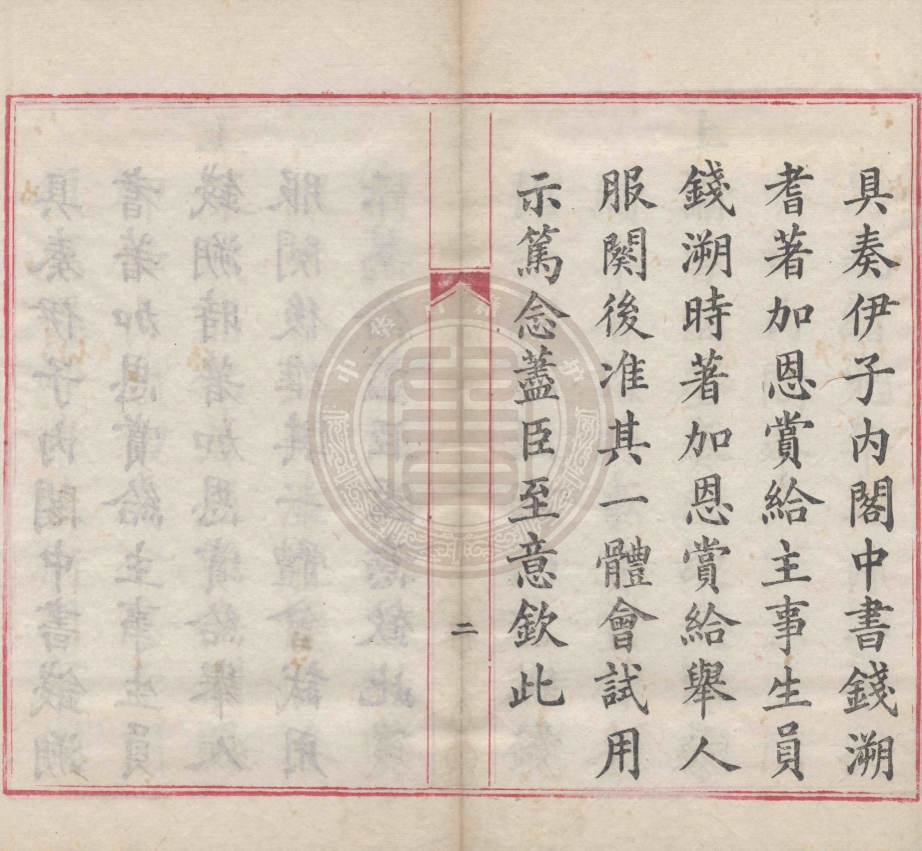 具奏伊子內閣中書錢溯
耆著加恩賞給主事生員
錢溯時著加恩賞給舉人
服闋後准其一體會試用
示篤念藎臣至意欽此
二